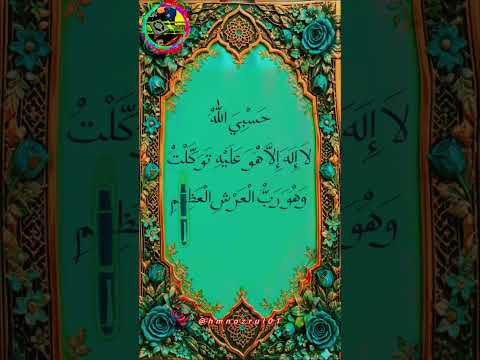 حَسْبِيَ اللّٰهُ
لَا إِلٰهَ إِلَّا هُوَ عَلَيْهِ تَوَكَّلْتُ
وَهُوَ رَبُّ الْعَرْشِ الْعَظِيمِ
@hmnazrul01